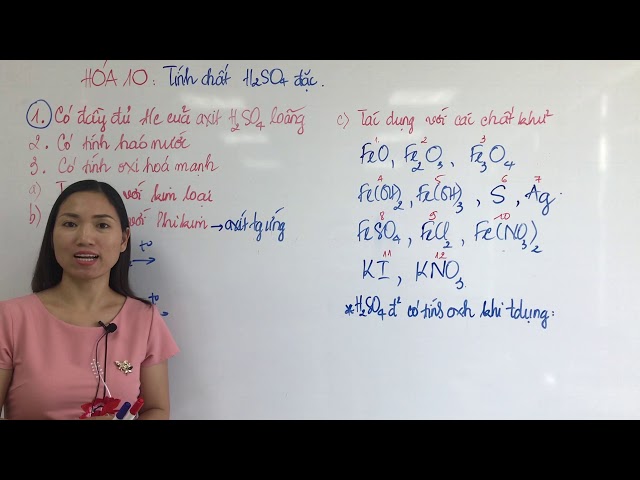 HÓA 10: Tính chất H₂SO₄ đặc.
1. Có đầy đủ t/c của axit H₂SO₄ loãng
2. Có tính háo nước
3. Có tính oxi hoá mạnh
a) với kim loại
b) với Phi kim → axit tg ứng
t°
t°
c) Tác dụng với các chất khử
1 2 3
FeO, Fe₂O₃, Fe₃O₄
4 5 6 7
Fe(OH)₂, Fe(OH)₃, S, Ag.
8 9 10
FeSO₄, FeCl₂, Fe(NO₃)₂
11 12
KI, KNO₃
*H₂SO₄ đ² có tính oxh khi tdụng: